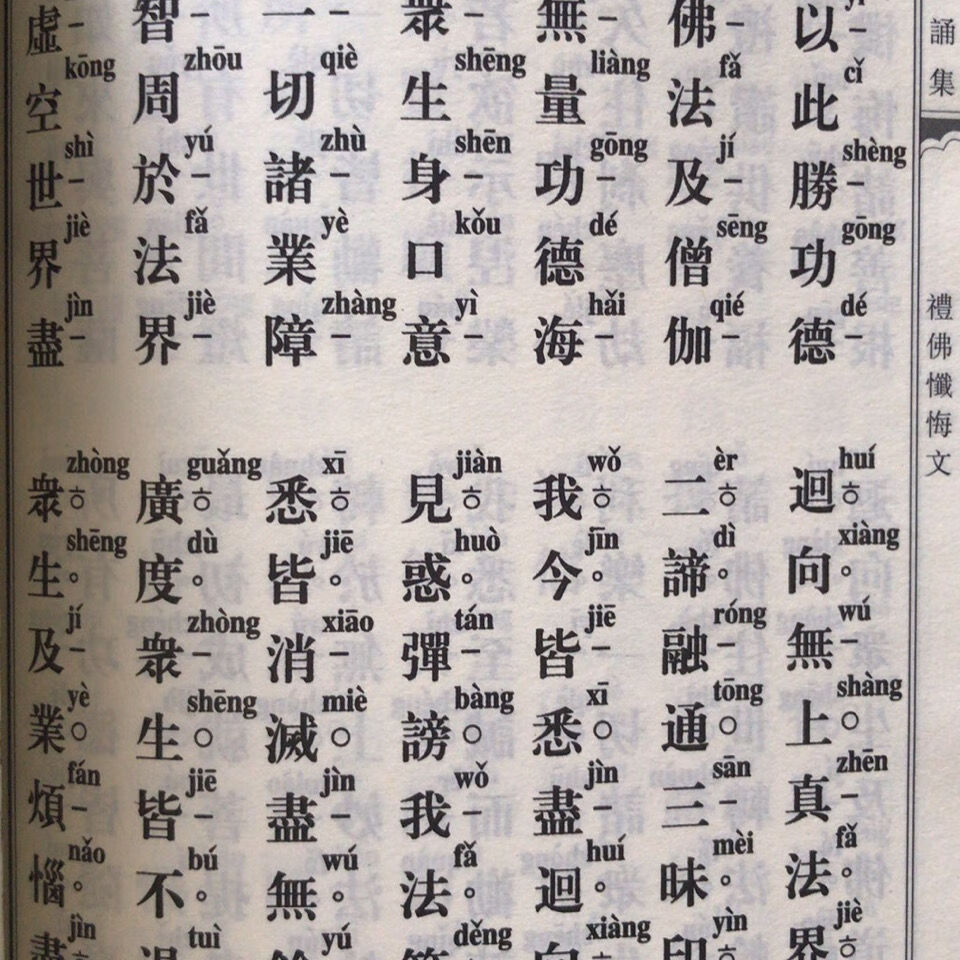 誦集
禮佛懺悔文
以此勝功德
cǐ shèng gōng dé
迴向無上真法界
huí xiàng wú shàng zhēn fǎ jiè
佛法及僧伽
fǎ jí sēng qié
二諦融通三昧印
èr dì róng tōng sān mèi yìn
無量功德海
liàng gōng dé hǎi
我今皆悉盡迴向
wǒ jīn jiē xī jìn huí xiàng
衆生身口意
shēng shēn kǒu yì
見惑彈謗我法等
jiàn huò tán bàng wǒ fǎ děng
一切諸業障
qiè zhù yè zhàng
悉皆消滅盡無餘
xī jiē xiāo miè jìn wú yú
智周於法界
zhōu yú fǎ jiè
廣度衆生皆不退
guǎng dù zhòng shēng jiē bú tuì
虛空世界盡
kōng shì jiè jìn
衆生及業煩惱盡
zhòng shēng jí yè fán nǎo jìn